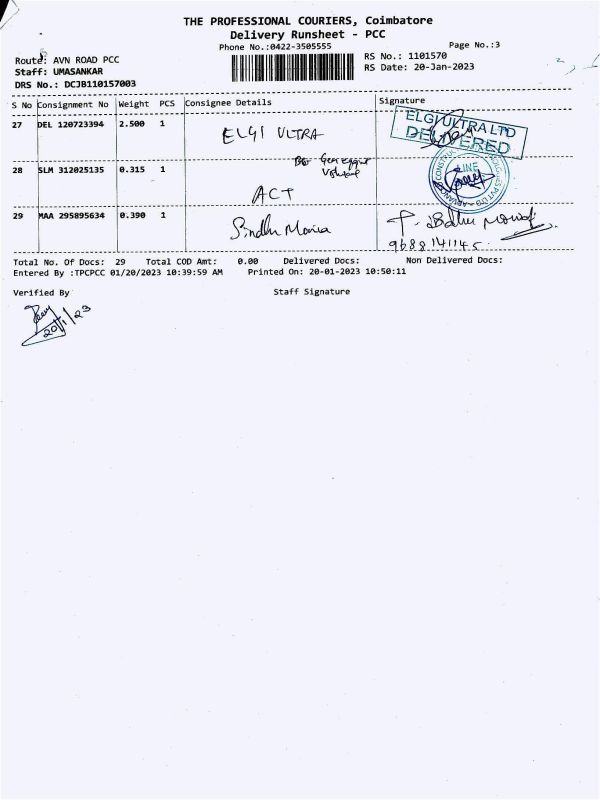 THE PROFESSIONAL COURIERS, Coimbatore
Delivery Runsheet - PCC
Phone No.:0422-3505555
Page No.:3
Route: AVN ROAD PCC
RS No.: 1101570
Staff: UMASANKAR
RS Date: 20-Jan-2023
DRS No.: DCJB110157003
S No Consignment No Weight PCS Consignee Details Signature
27 DEL 120723394 2.500 1 ELGI ULTRA
ELGI ULTRA LTD
DELIVERED
28 SLM 312025135 0.315 1
ACT
LINE
29 MAA 295895634 0.390 1 Sindhu
9688141145
Total No. Of Docs: 29 Total COD Amt: 0.00 Delivered Docs: Non Delivered Docs:
Entered By :TPCPCC 01/20/2023 10:39:59 AM Printed On: 20-01-2023 10:50:11
Verified By Staff Signature
20/1/23